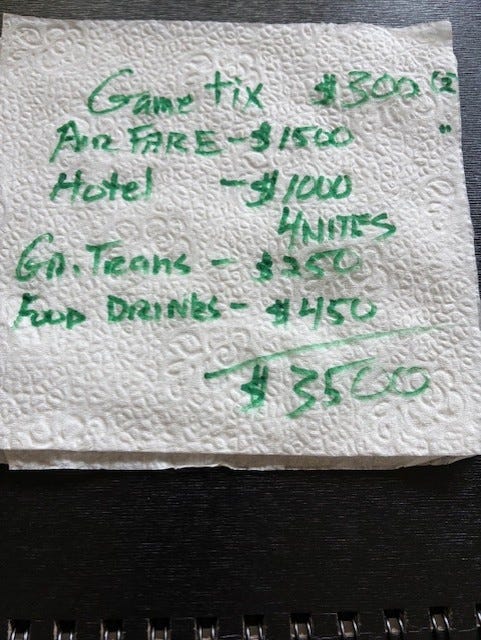 Game tix $300 (2
"
AIR FARE - $1500
Hotel - $1000
4 NITES
GR. TRANS - $250
FOOD DRINKS - $450
$3500